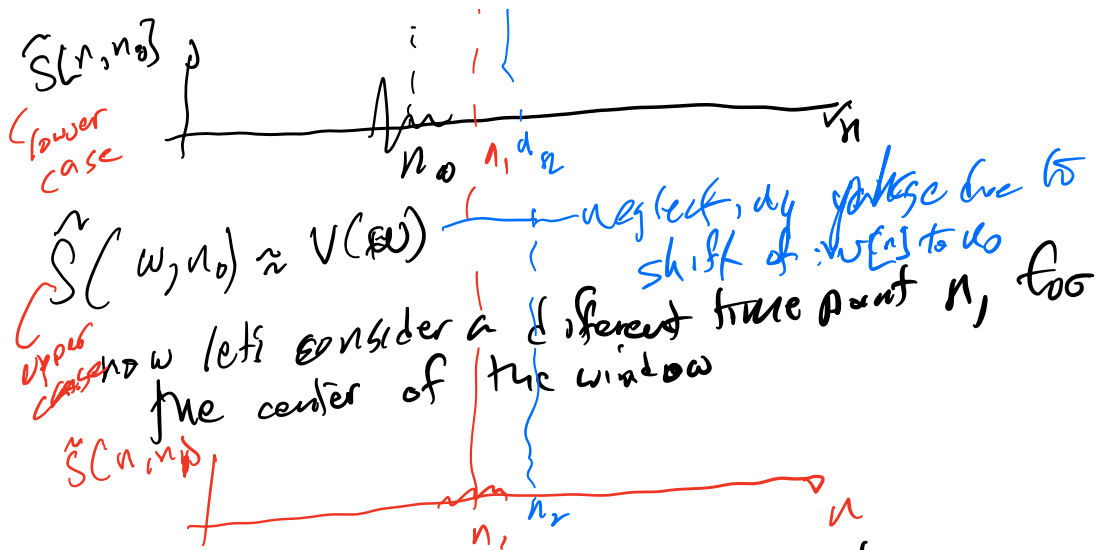 s̃[n, n₀]
(lower
case
n
n₀ n₁ n₂
S̃(ω, n₀) ≈ V(ω)
neglect, due to
shift of w[n] to n₀
upper
case
now lets consider a diferent time point n, for
the center of the window
s̃(n, n₁)
n₁ n₂ n